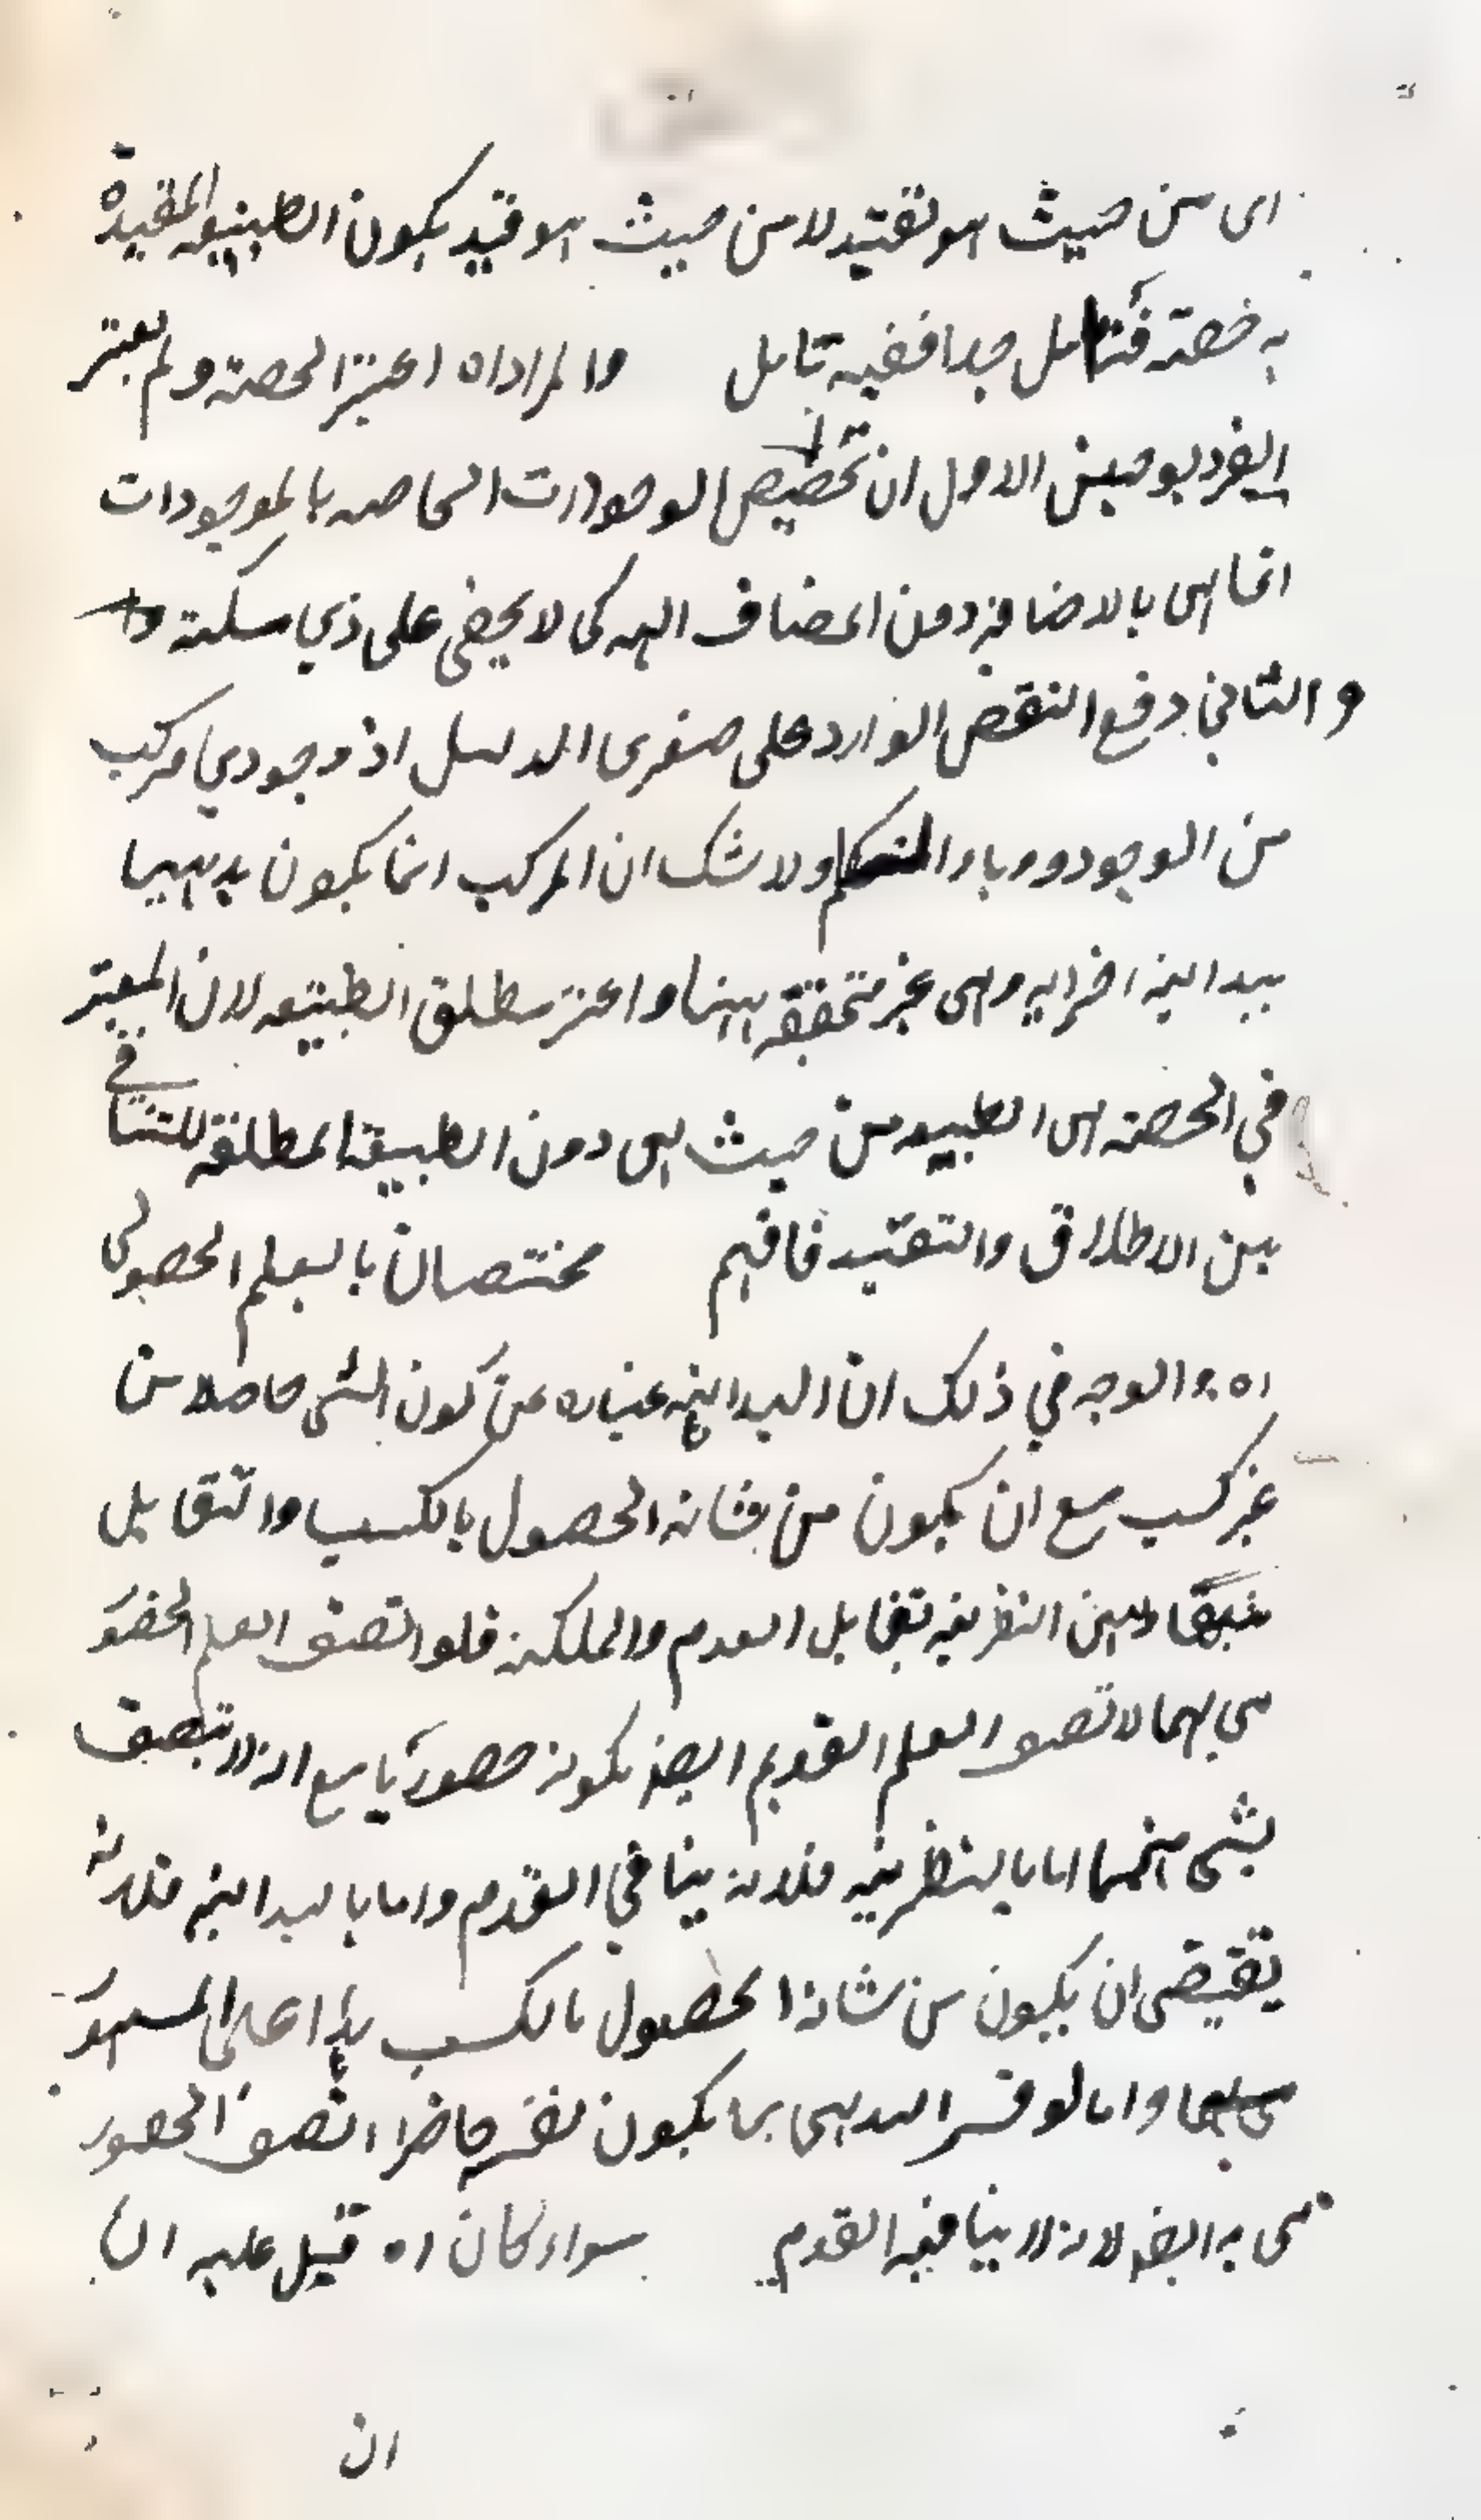 اى من حيث هو تقييد لا من حيث هو قيد يكون الطبيعة المقيدة
به حصة فتأمل جدا ففيه تامل والمراد اه اعتبر الحصة ولم يعتبر
الفرد بوجهين الاول ان تخصيص الوجودات الخاصه بالموجودات
انما هى بالاضافة دون المضاف اليه كما لا يخفى على ذي مسكة
و الثاني دفع النقض الوارد على صغرى الدليل اذ وجودي مركب
من الوجود وياء المتكلم ولا شك ان المركب انما يكون بديهيا
ببداهة اجزايه وهى غير متحققه ههنا واعتبر مطلق الطبيعه لان المعتبر
في الحصة هى الطبيعه من حيث هى دون الطبيعة المطلقة للتنافي
بين الاطلاق والتقييد فافهم مختصان بالعلم الحصولى
اه والوجه في ذلك ان البداهة عباره عن كون الشى حاصلا من
غير كسب مع ان يكون من شانه الحصول بالكسب والتقابل
بينها وبين النظرية تقابل العدم والملكة فلو اتصف العلم الحضور
ى بهما لاتصف العلم القديم ايضا لكونه حضوريا مع انه لا يتصف
بشى منهما اما بالنظرية فلانه ينافي القدم واما بالبداهة فلانه
يقتضى ان يكون من شانه الحصول بالكسب هذا على المشهور
واما لو فسر البديهى بما يكون نفسه حاضرا اتصف الحضور
ى به ايضا لانه لا ينافيه القدم سواء كان اه قيل عليه ان
ان